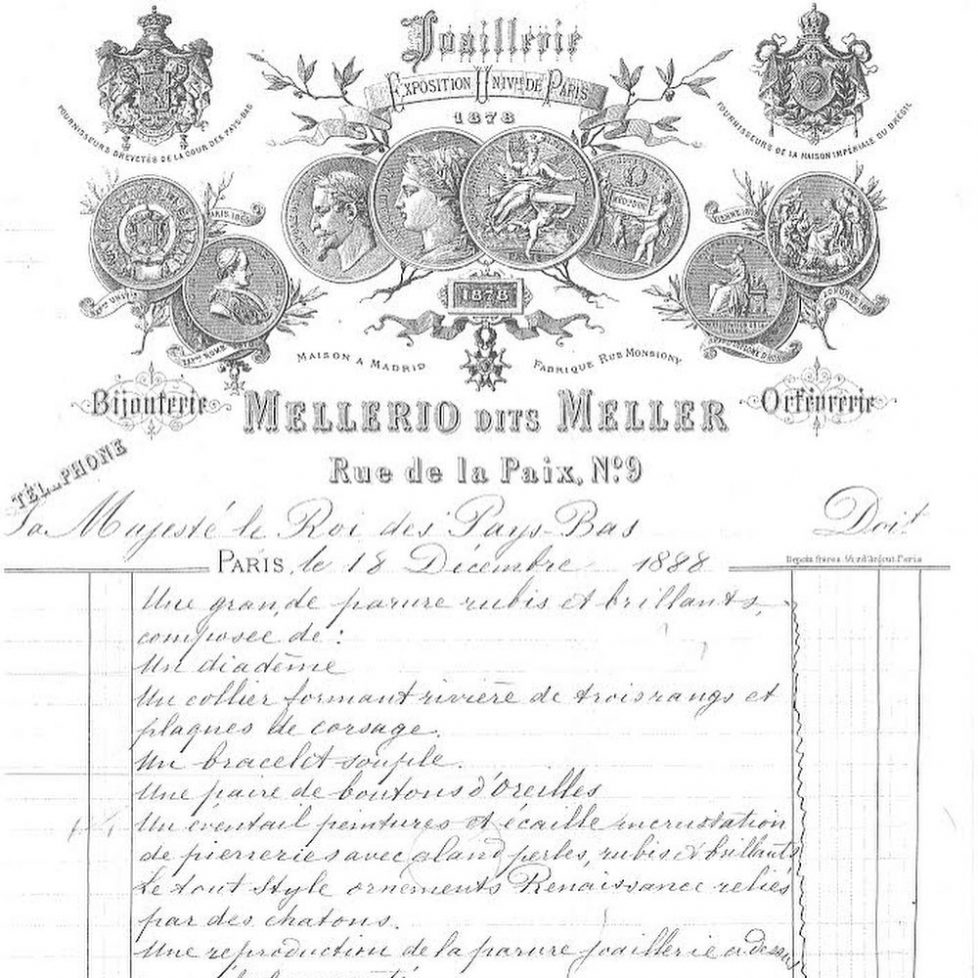 Joaillerie
EXPOSITION UNIV.LLE DE PARIS
1878
FOURNISSEURS BREVETÉS DE LA COUR DES PAYS-BAS
FOURNISSEURS DE LA MAISON IMPÉRIALE DU BRÉSIL
PARIS
VIENNE
LONDRES
1878
MAISON A MADRID
FABRIQUE RUE MONSIGNY
Bijouterie
MELLERIO DITS MELLER
Orfévrerie
TÉL PHONE
Rue de la Paix, Nº 9
Sa Majesté le Roi des Pays-Bas Doit
PARIS, le 18 Décembre 1888
Une grande parure rubis et brillants,
composée de :
Un diadême
Un collier formant rivière de trois rangs et
plaques de corsage.
Un bracelet souple.
Une paire de boutons d'Oreilles
Un eventail peintures et écaille incrustation
de pierreries avec gland perles, rubis et brillants
Le tout Style ornements Renaissance reliés
par des chatons.
Une reproduction de la parure joaillerie